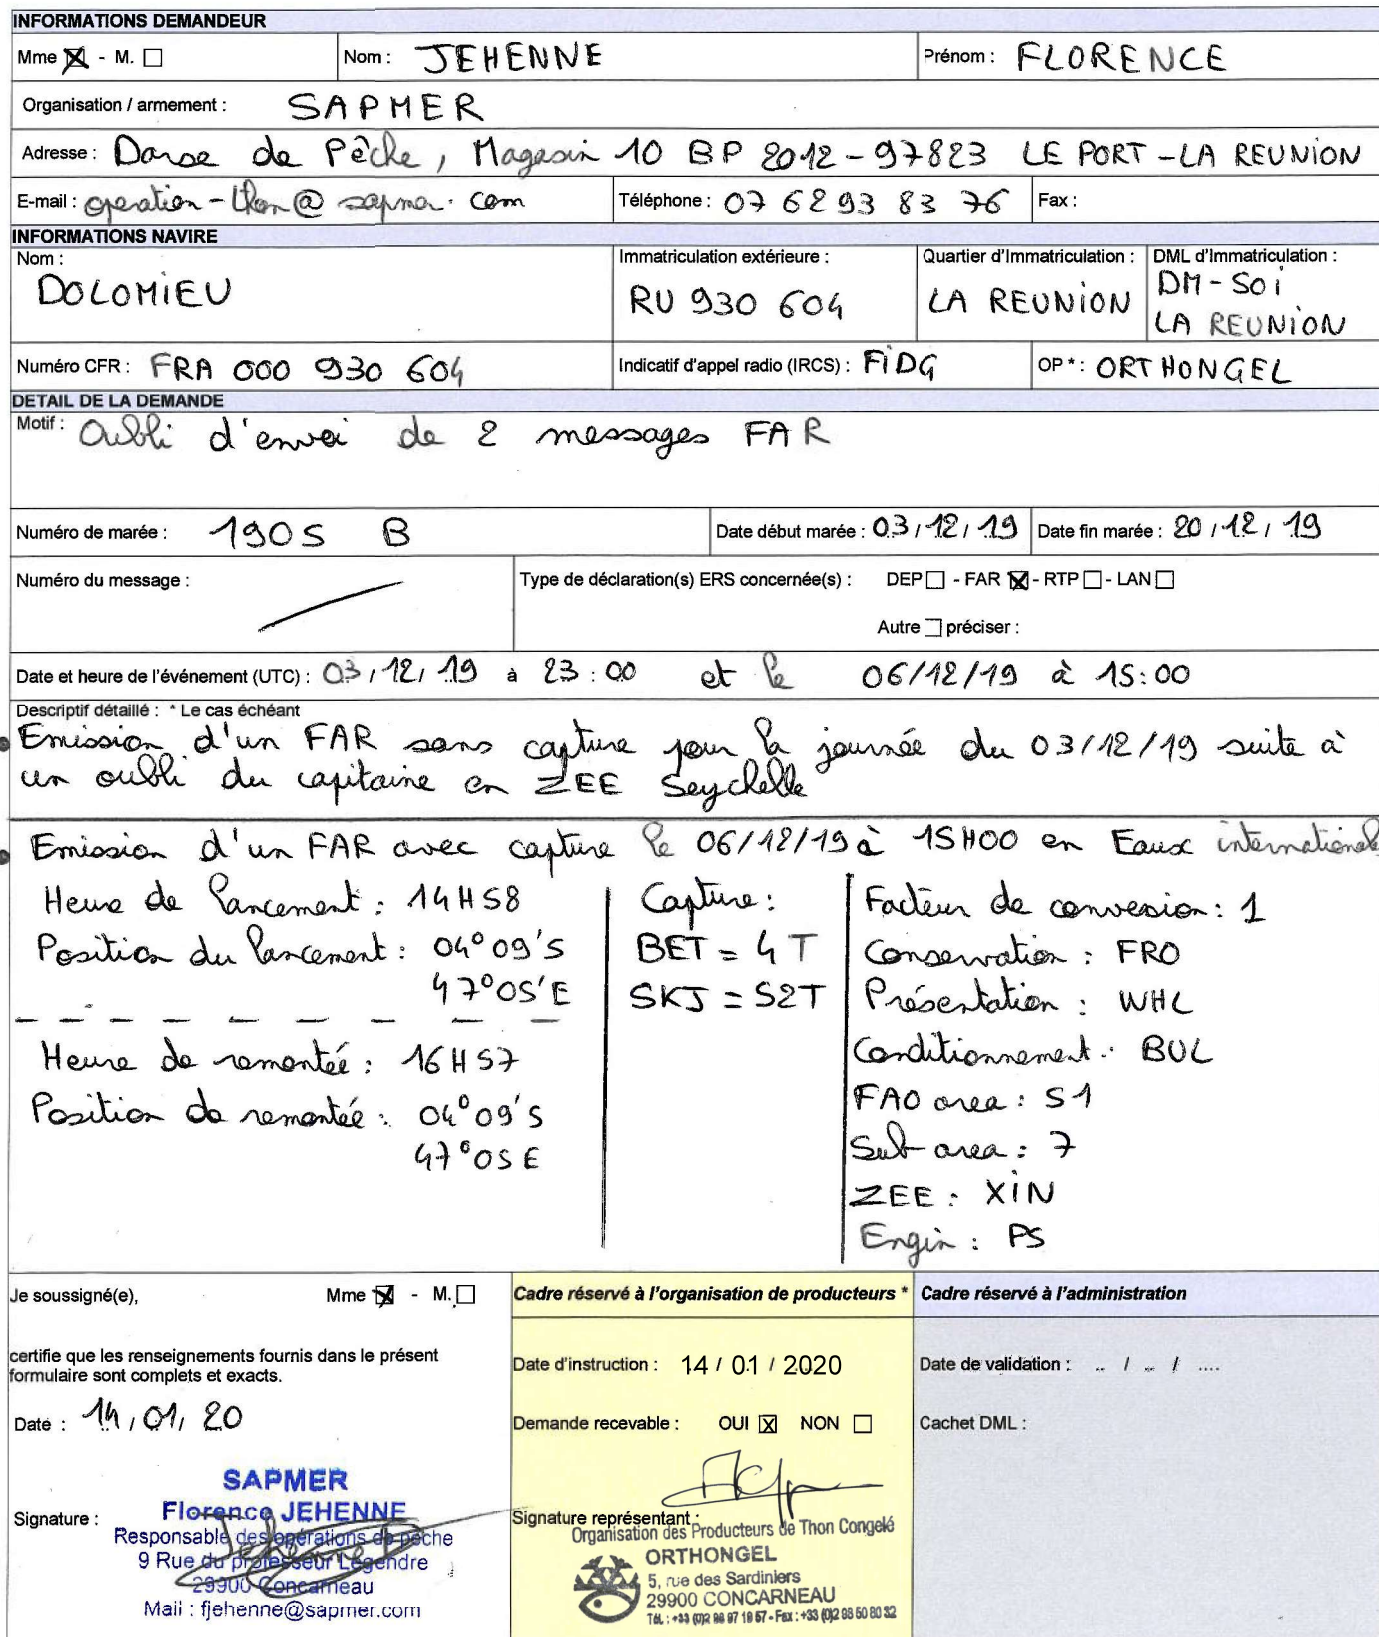 INFORMATIONS DEMANDEUR
Mme ☒ - M. ☐ Nom : JEHENNE Prénom : FLORENCE
Organisation / armement : SAPMER
Adresse : Darse de Pêche, Magasin 10 BP 2012 - 97823 LE PORT - LA REUNION
E-mail : operation-thon@sapmer.com Téléphone : 07 62 93 83 76 Fax :
INFORMATIONS NAVIRE
Nom : Immatriculation extérieure : Quartier d'Immatriculation : DML d'Immatriculation :
DOLOMIEU RU 930 604 LA REUNION DM-SOI
LA REUNION
Numéro CFR : FRA 000 930 604 Indicatif d'appel radio (IRCS) : FIDG OP * : ORTHONGEL
DETAIL DE LA DEMANDE
Motif : Oubli d'envoi de 2 messages FAR
Numéro de marée : 1905 B Date début marée : 03 / 12 / 19 Date fin marée : 20 / 12 / 19
Numéro du message : Type de déclaration(s) ERS concernée(s) : DEP ☐ - FAR ☒ - RTP ☐ - LAN ☐
Autre ☐ préciser :
Date et heure de l'événement (UTC) : 03 / 12 / 19 à 23 : 00 et le 06/12/19 à 15:00
Descriptif détaillé : * Le cas échéant
• Emission d'un FAR sans capture pour la journée du 03/12/19 suite à
un oubli du capitaine en ZEE Seychelle
• Emission d'un FAR avec capture le 06/12/19 à 15H00 en Eaux internationales
Heure de lancement : 14H58
Position du lancement : 04°09'S
47°05'E
Heure de remontée : 16H57
Position de remontée : 04°09'S
47°05E
Capture :
BET = 4T
SKJ = 52T
Facteur de convesion : 1
Conservation : FRO
Présentation : WHL
Conditionnement : BUL
FAO area : 51
Sub area : 7
ZEE : XIN
Engin : PS
Je soussigné(e), Mme ☒ - M. ☐
certifie que les renseignements fournis dans le présent
formulaire sont complets et exacts.
Date : 14 / 01 / 20
Signature :
SAPMER
Florence JEHENNE
Responsable des opérations de pêche
9 Rue du professeur Legendre
29900 Concarneau
Mail : fjehenne@sapmer.com
Cadre réservé à l'organisation de producteurs *
Date d'instruction : 14 / 01 / 2020
Demande recevable : OUI ☒ NON ☐
Signature représentant :
Organisation des Producteurs de Thon Congelé
ORTHONGEL
5, rue des Sardiniers
29900 CONCARNEAU
Tél. : +33 (0)2 98 97 19 57 - Fax : +33 (0)2 98 50 80 32
Cadre réservé à l'administration
Date de validation : .. / .. / ....
Cachet DML :